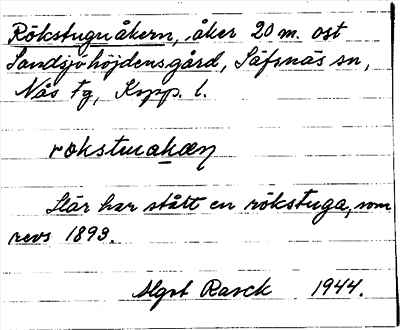 Rökstuguåkern, åker 20 m. ost
Sandsjöhöjdens gård, Säfsnäs sn,
Nås tg, Kopp. l.
Här har stått en rökstuga, som
revs 1893.
Algot Rasck 1944.